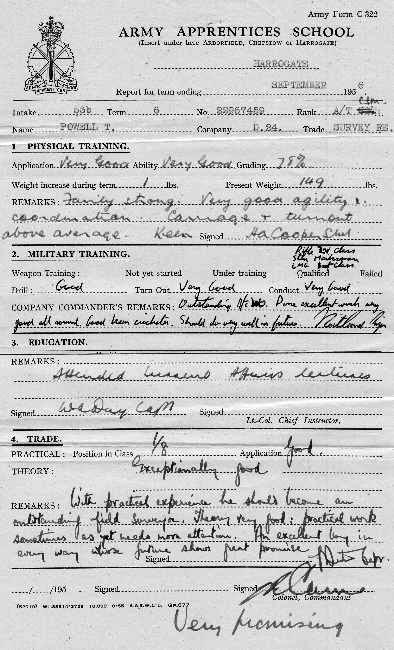 Army Form C 322
ARMY APPRENTICES SCHOOL
(Insert under here ARBORFIELD, CHEPSTOW or HARROGATE)
HARROGATE
Report for term ending SEPTEMBER 1956
Intake 53b Term 6 No. Rank A/T
Name POWELL T. Company D.24. Trade SURVEY RE.
1 PHYSICAL TRAINING.
Application Very Good Ability Very Good Grading 78%
Weight increase during term 1 lbs. Present Weight 149 lbs.
REMARKS: Fairly strong. Very good agility &
coordination. Carriage & turnout
above average. Keen Signed
2. MILITARY TRAINING.
Weapon Training: Not yet started Under training Qualified Failed
Drill: Good Turn Out Very Good Conduct Very Good
COMPANY COMMANDER'S REMARKS: Outstanding. Done excellent work very
good all round. Good keen cricketer. Should do very well in future.
3. EDUCATION.
REMARKS:
Attended lectures
Signed Signed
Lt-Col. Chief Instructor.
4. TRADE.
PRACTICAL: Position in Class 1/8 Application Good.
THEORY: Exceptionally good
REMARKS: With practical experience he should become an
outstanding field surveyor. Theory very good: practical work
sometimes as yet needs more attention. An excellent boy in
every way whose future shows great promise.
Signed
/ /195 . Signed Signed
Colonel, Commandant
Very promising